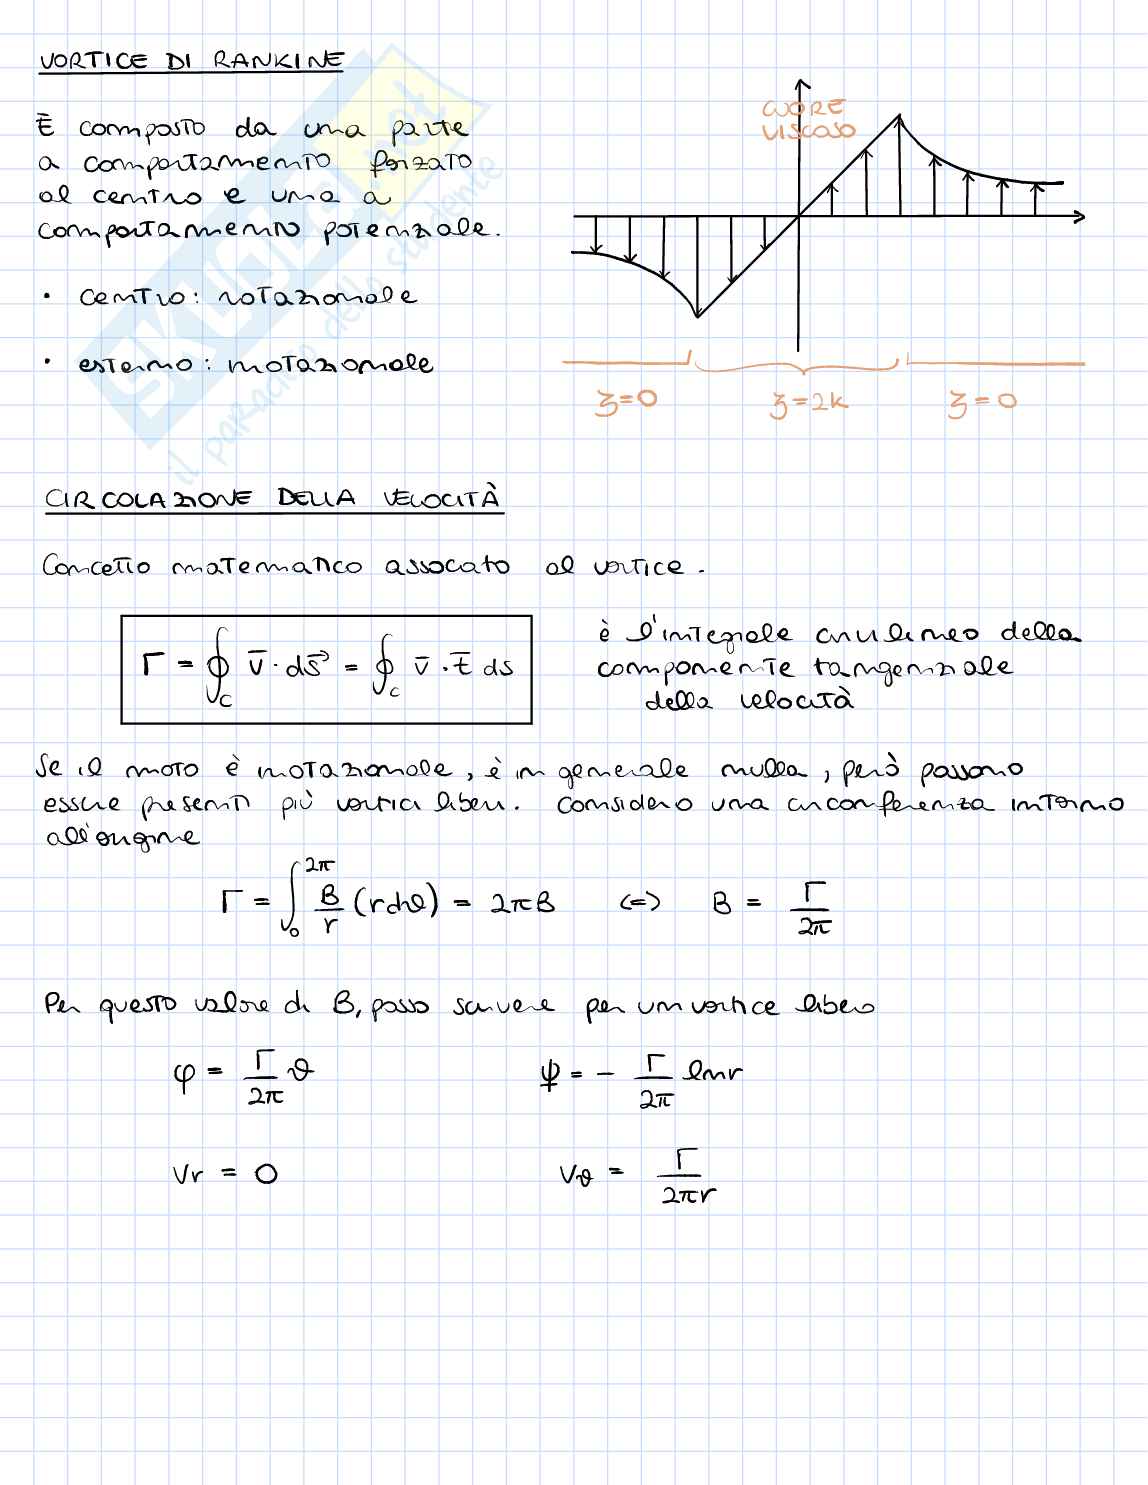 VORTICE DI RANKINE
È composto da una parte
a comportamento forzato
al centro e una a
comportamento potenziale.
• centro: rotazionale
• esterno: irrotazionale
CUORE
VISCOSO
ξ=0 ξ=2k ξ=0
SKUOLA.net
il paradiso dello studente
CIRCOLAZIONE DELLA VELOCITÀ
Concetto matematico assocato al vortice.
Γ = ∮_C v̅ · ds⃗ = ∮_C v̅ · t̅ ds
è l'integrale curvilineo della
componente tangenziale
della velocità
Se il moto è irrotazionale, è in generale nulla, però possono
essere presenti più vortici liberi. Considero una circonferenza intorno
all'origine
Γ = ∫₀^2π B/r (r dϑ) = 2πB <=> B = Γ/2π
Per questo valore di B, posso scrivere per un vortice libero
φ = Γ/2π ϑ ψ = - Γ/2π ln r
Vr = 0 Vϑ = Γ/2πr